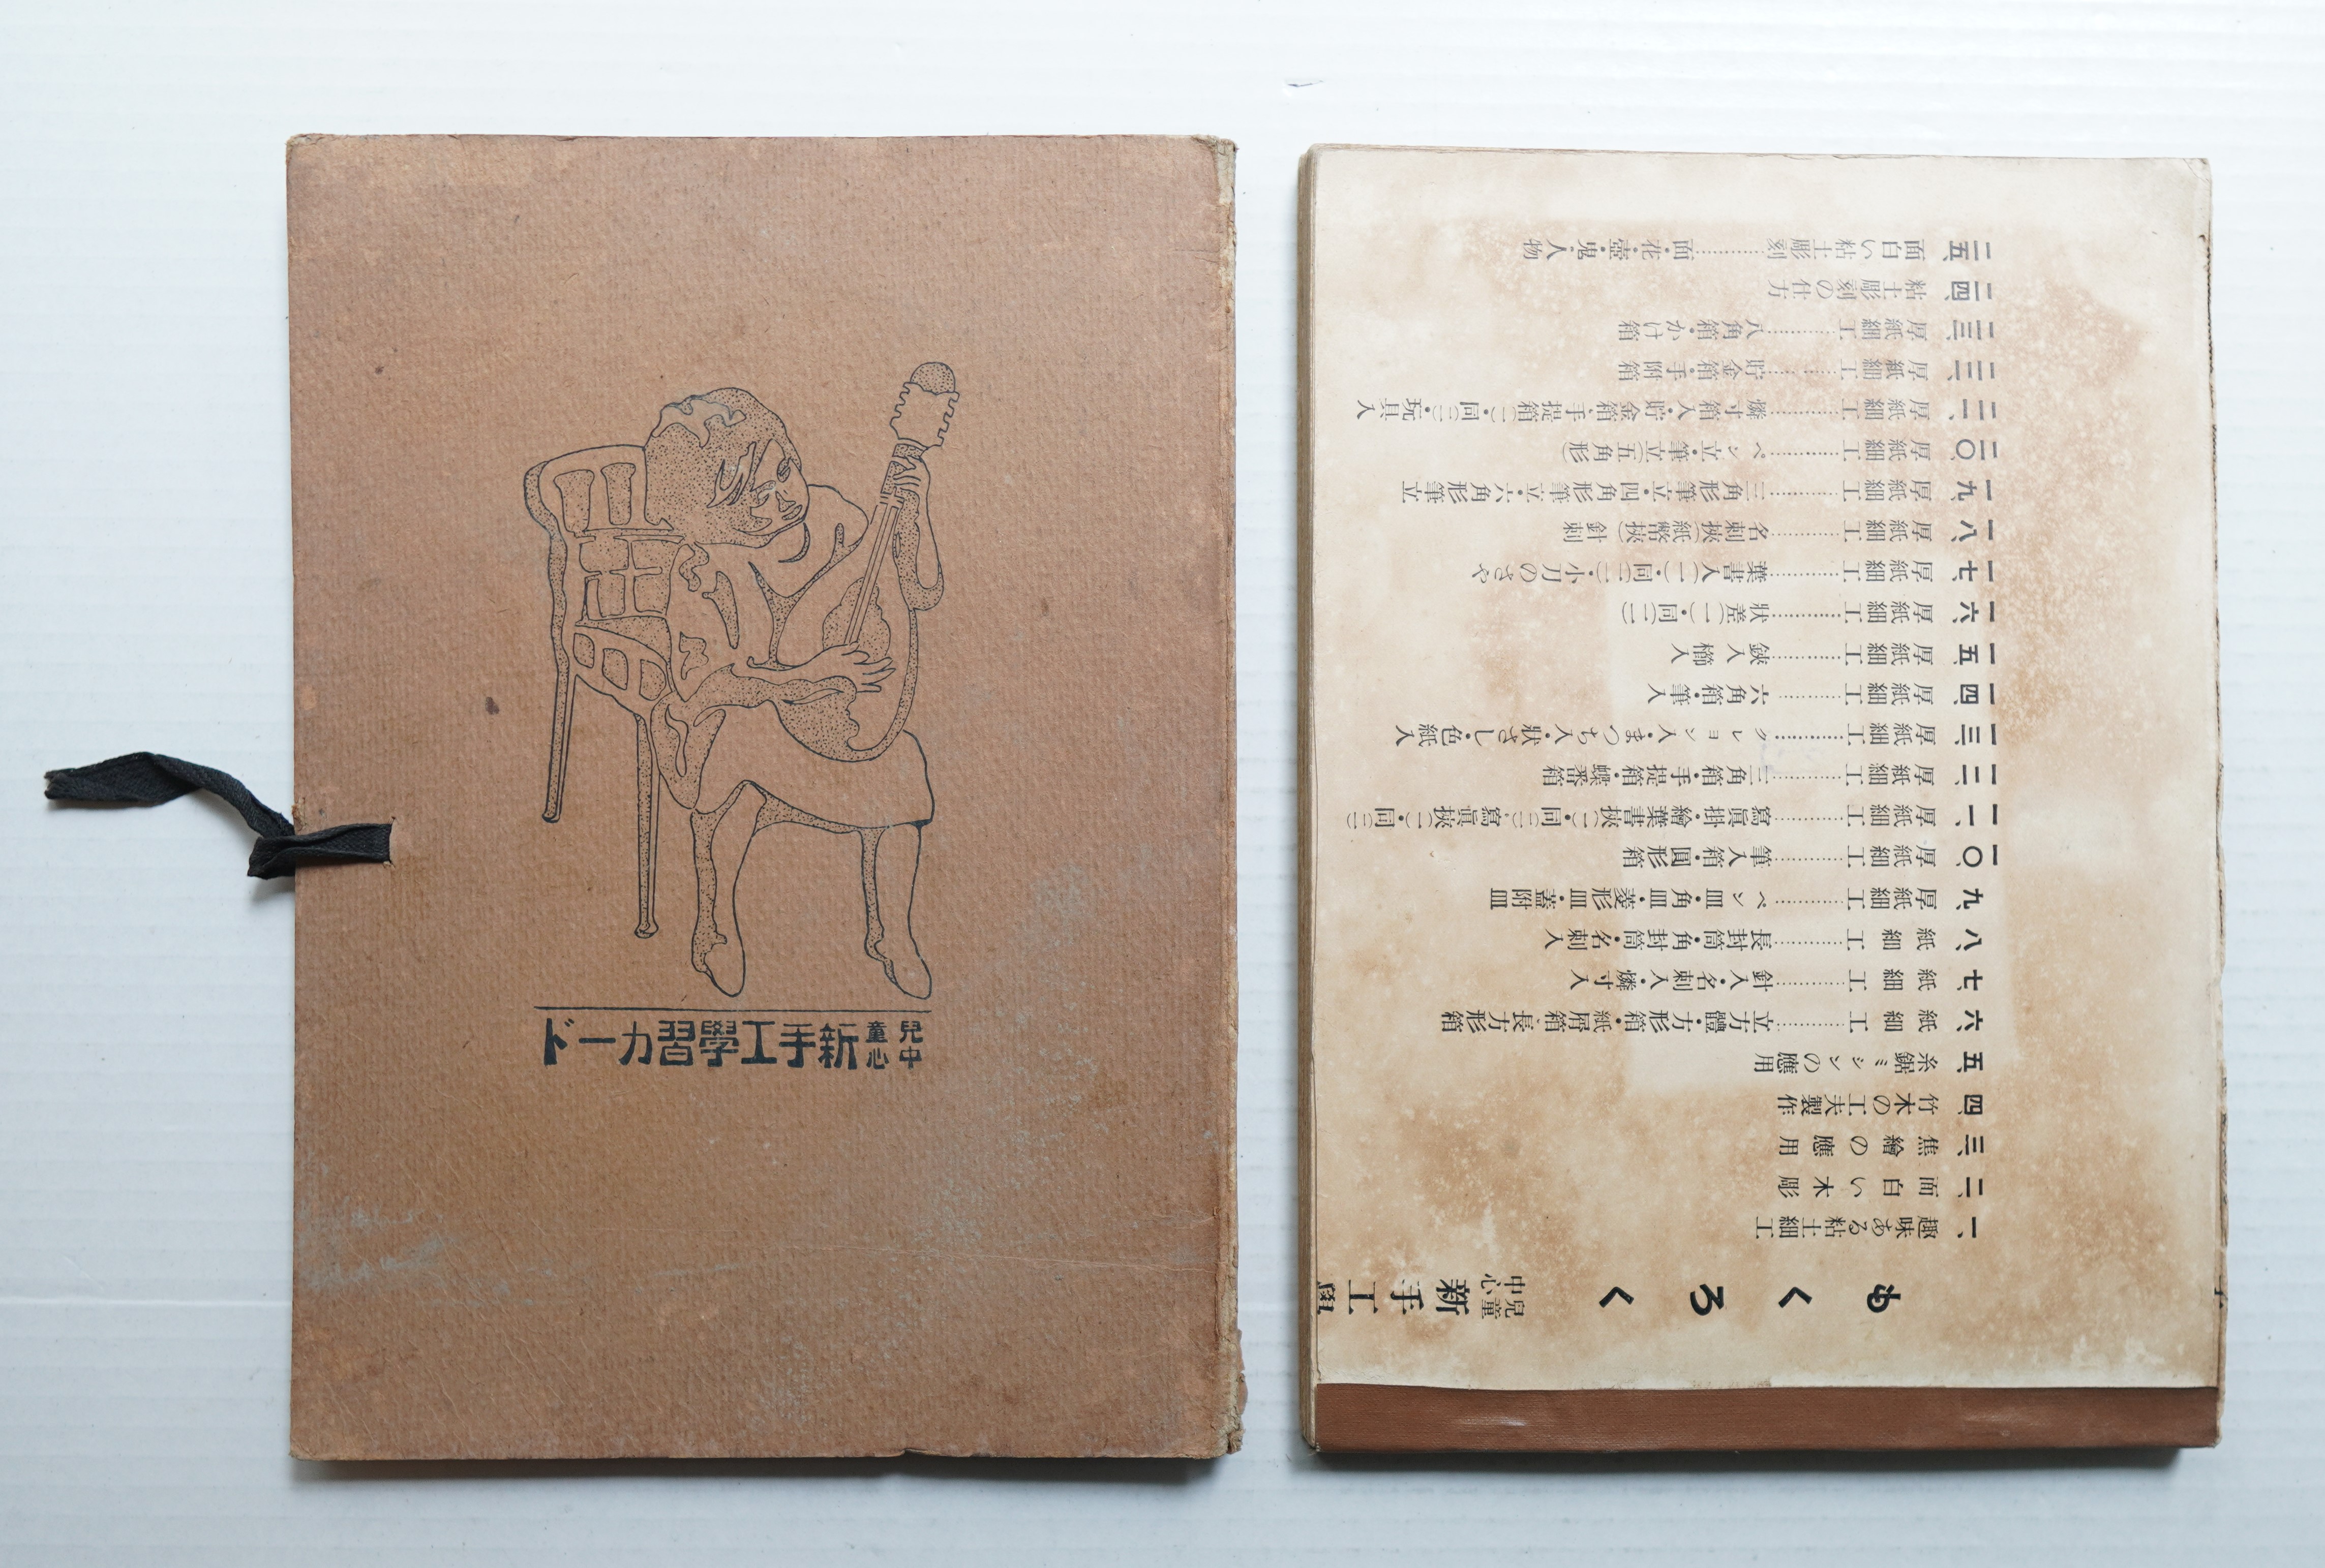 兒童中心 新手工學習カード
もくろく 兒童中心 新手工學
一、趣味ある粘土細工
二、面白い木彫
三、焦繪の應用
四、竹木の工夫製作
五、糸鋸ミシンの應用
六、紙細工…………立方體・方形箱・紙屑箱・長方形箱
七、紙細工…………針入・名刺入・燐寸入
八、紙細工…………長封筒・角封筒・名刺入
九、厚紙細工…………ペン皿・角皿・菱形皿・蓋附皿
一〇、厚紙細工…………筆入箱・圓形箱
一一、厚紙細工…………寫眞掛・繪葉書挾(一)・同(二)・寫眞挾(一)・同(二)
一二、厚紙細工…………三角箱・手提箱・蝶番箱
一三、厚紙細工…………クレヨン入・まつち入・狀さし・色紙入
一四、厚紙細工…………六角箱・筆入
一五、厚紙細工…………鋏入・櫛入
一六、厚紙細工…………狀差(一)・同(二)
一七、厚紙細工…………葉書入(一)・同(二)・小刀のさや
一八、厚紙細工…………名刺挾(紙幣挾)・針刺
一九、厚紙細工…………三角形筆立・四角形筆立・六角形筆立
二〇、厚紙細工…………ペン立・筆立(五角形)
二一、厚紙細工…………燐寸箱入・貯金箱・手提箱(一)・同(二)・玩具入
二二、厚紙細工…………貯金箱・手附箱
二三、厚紙細工…………八角箱・かけ箱
二四、粘土彫刻の仕方
二五、面白い粘土彫刻…………面・花・壺・鬼・人物